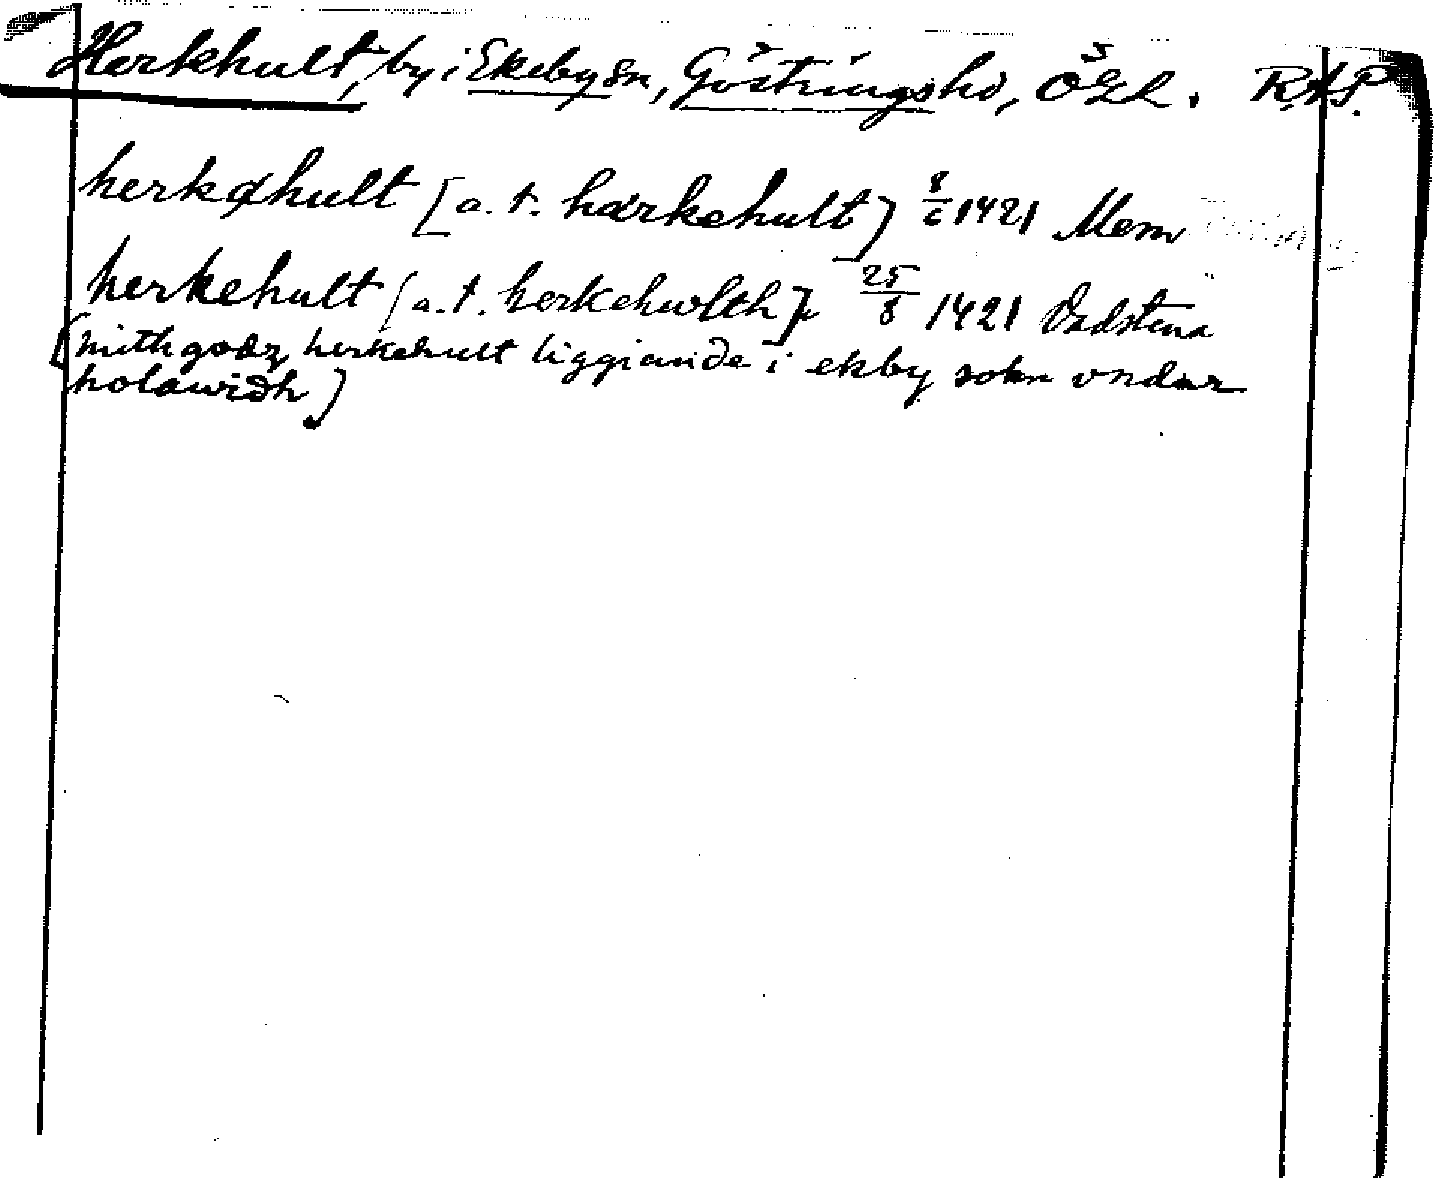 Herkhult, by i Ekeby sn, Göstringshd, ÖGL. RAP.
herkøhult [a. t. harkehult] 8/6 1421 Mem
herkehult [a. t. herkehwlth] 25/8 1421 Vadstena
(mith godz herkehult liggiande i ekby sokn vndær
holawidh)